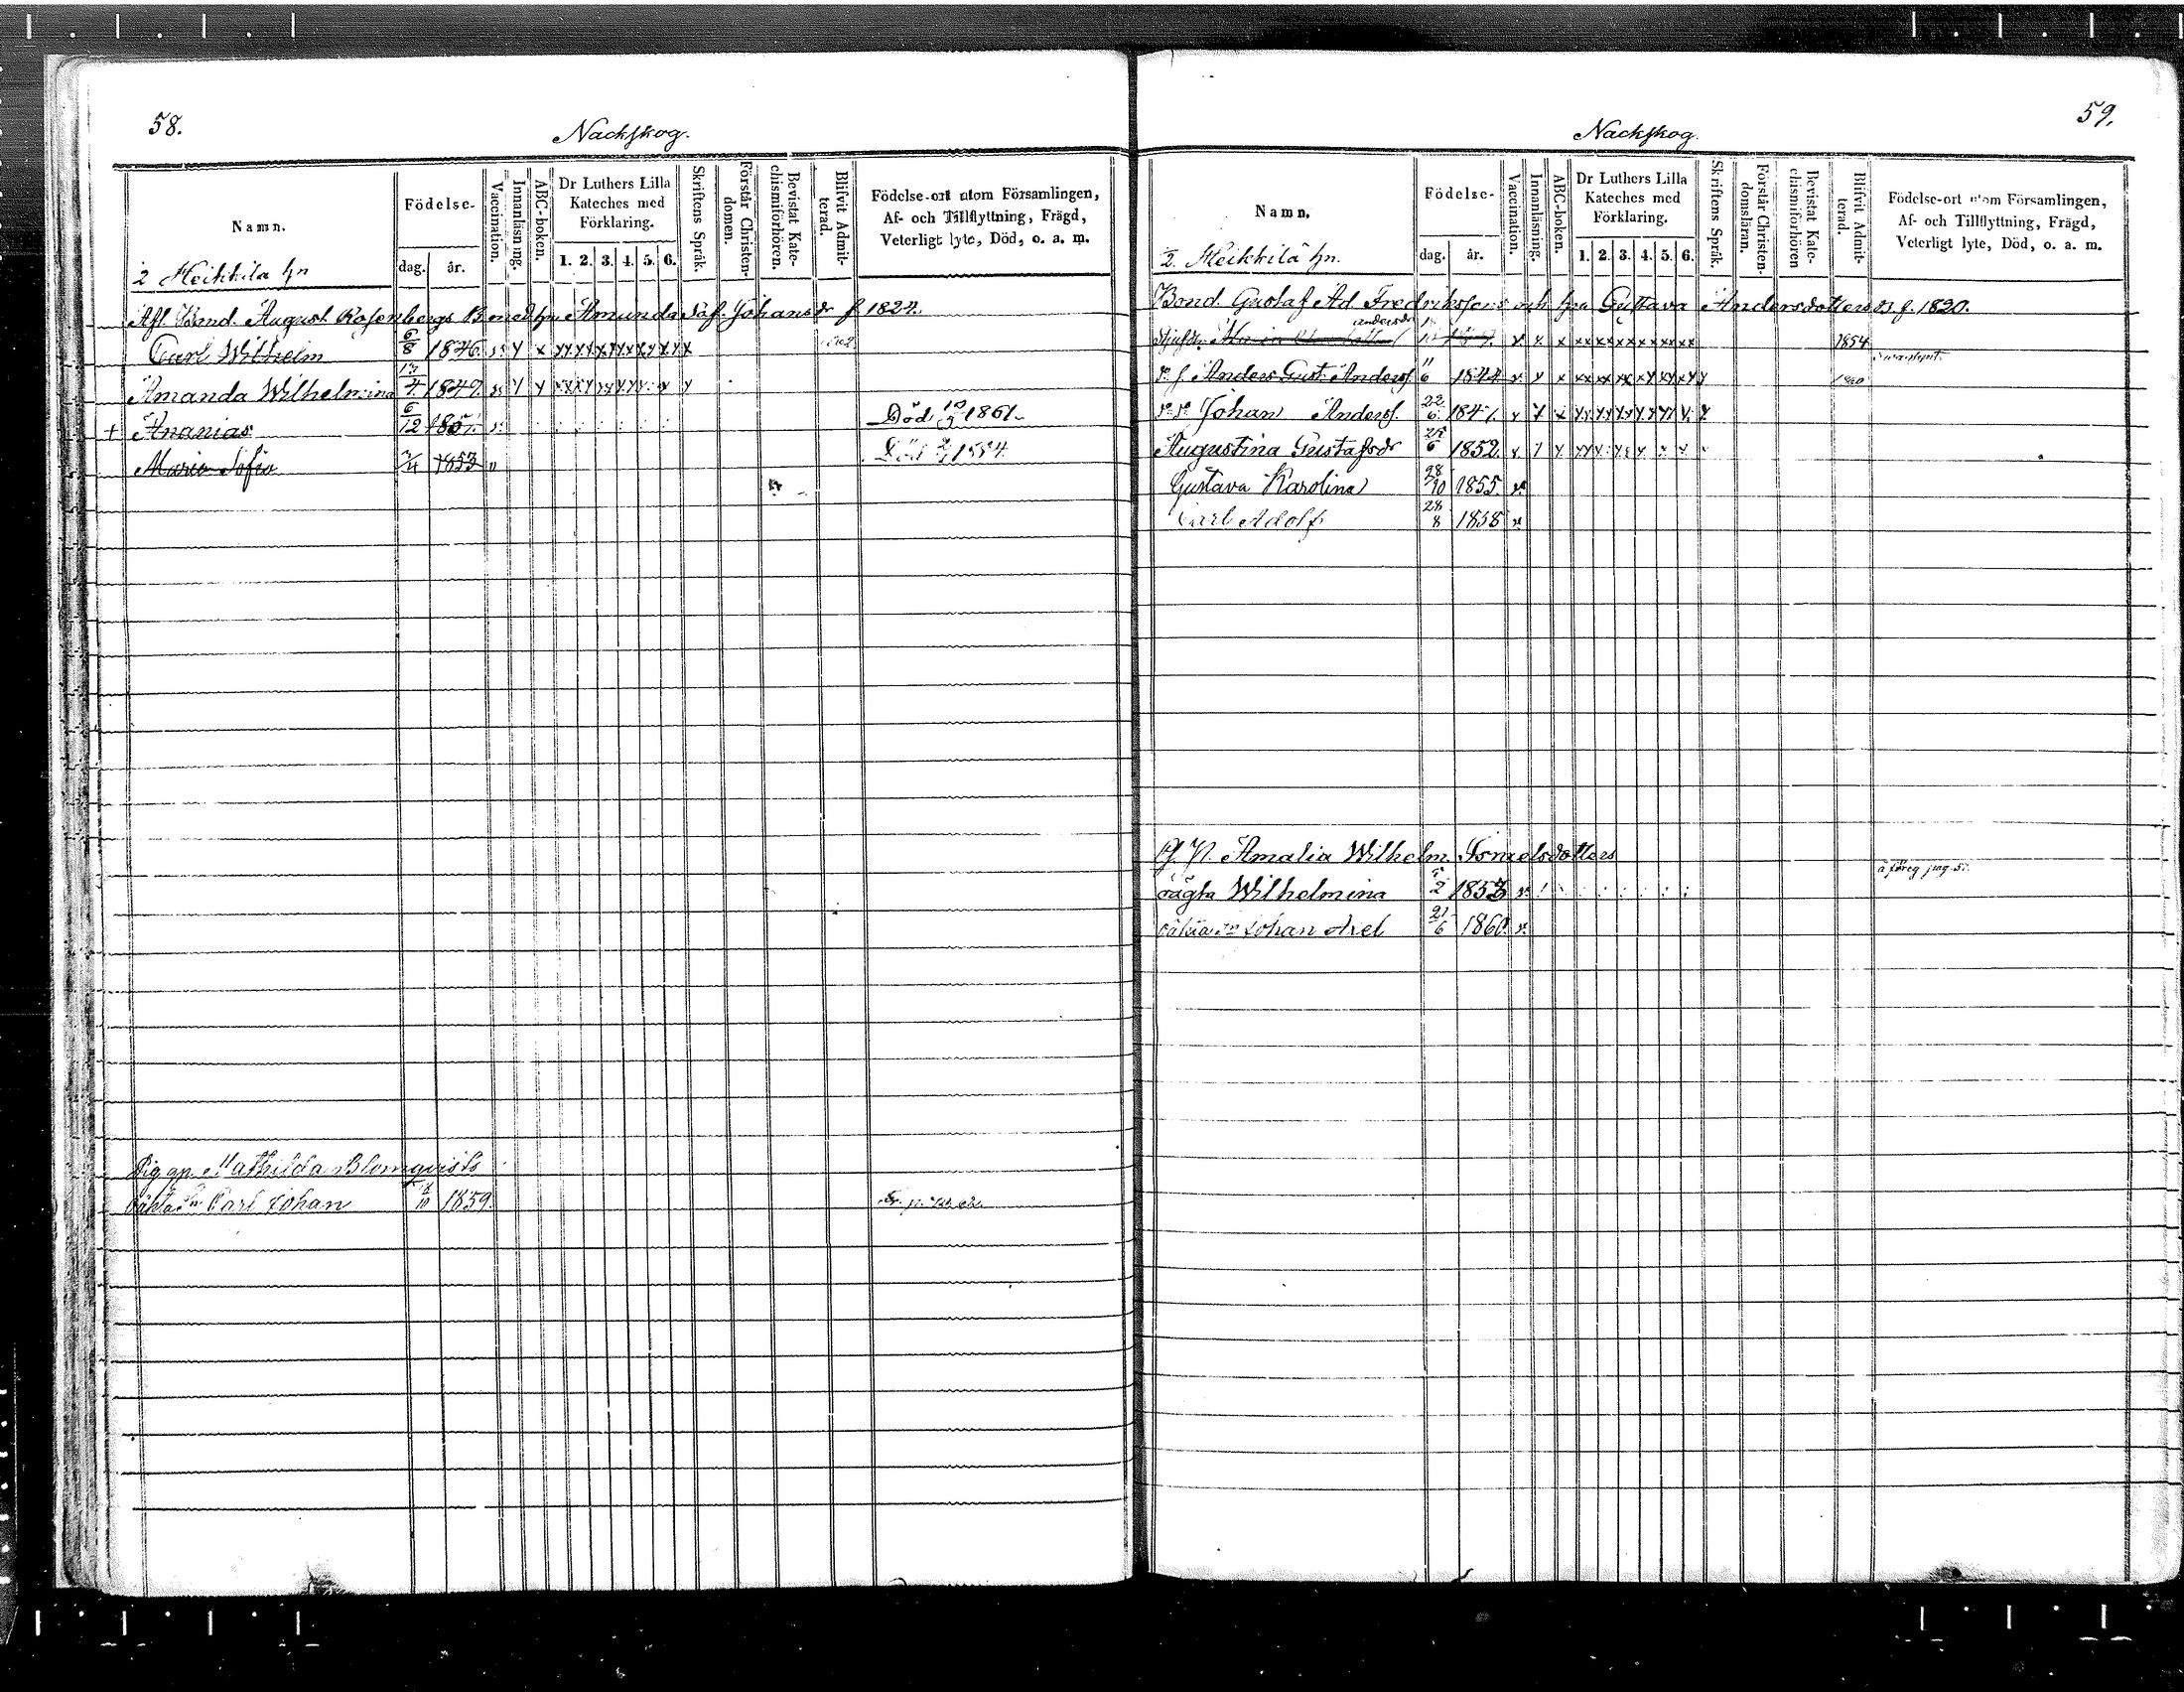 58.
Nackskog.
Namn.
Födelse-
dag.
år.
Vaccination.
Innanläsning.
ABC-boken.
Dr Luthers Lilla
Kateches med
Förklaring.
1. 2. 3. 4. 5. 6.
Skriftens Språk.
Förstår Christen-
domen.
Bevistat Kate-
chismiförhören.
Blifvit Admit-
terad.
Födelse-ort utom Församlingen,
Af- och Tillflyttning, Frägd,
Veterligt lyte, Död, o. a. m.
2 Heikkilä hn
Afl. Bond. August Rosenbergs Amunda Johansdr f 1824.
Carl Wilhelm 6/8 1846.
Amanda Wilhelmina 13/4 1849.
+ Ananias 6/12 1851. Död 1861.
Maria Sofia 1853 Död 1854
Pig Mathilda Blomqvists
oäkta Sn Carl Johan 1859.
59.
Nackskog.
Namn.
Födelse-
dag.
år.
Vaccination.
Innanläsning.
ABC-boken.
Dr Luthers Lilla
Kateches med
Förklaring.
1. 2. 3. 4. 5. 6.
Skriftens Språk.
Förstår Christen-
domsläran.
Bevistat Kate-
chismiförhören
Blifvit Admit-
terad.
Födelse-ort utom Församlingen,
Af- och Tillflyttning, Frägd,
Veterligt lyte, Död, o. a. m.
2. Heikkilä hn.
Bond. Gustaf Ad Fredrikssons och hu Gustava Andersdotters B. f. 1820.
andersdr
1854
Anders Gust. Anders. 11/6 1844
Johan Anders. 22/6 1847.
Augustina Gustafsdr 25/6 1852.
Gustava Karolina 28/10 1855.
Carl Adolf 28/8 1858
Amalia Wilhelm. Israelsdotters
oägta Wilhelmina 5/2 1853
oäkta sn Johan Axel 21/6 1860.